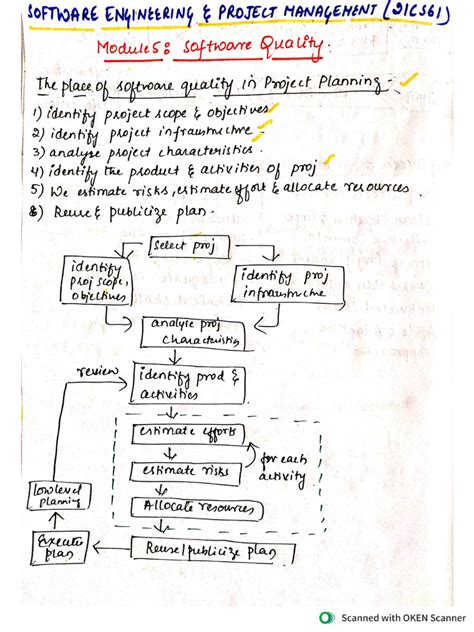 SOFTWARE ENGINEERING & PROJECT MANAGEMENT (21CS61)
Module5: Software Quality.
The place of software quality in Project Planning -
1) identify project scope & objectives
2) identify project infrastructure -
3) analyse project characteristics.
4) identify the product & activities of proj
5) We estimate risks, estimate effort & allocate resources.
6) Reuse & publicize plan.
select proj
identify
proj scope,
objectives
identify proj
infrastructure
analyse proj
characteristics
review
identify prod &
activities
estimate efforts
estimate risks
for each
activity
Allocate resources
low level
planning
Execute
plan
Reuse/publicize plan
Scanned with OKEN Scanner